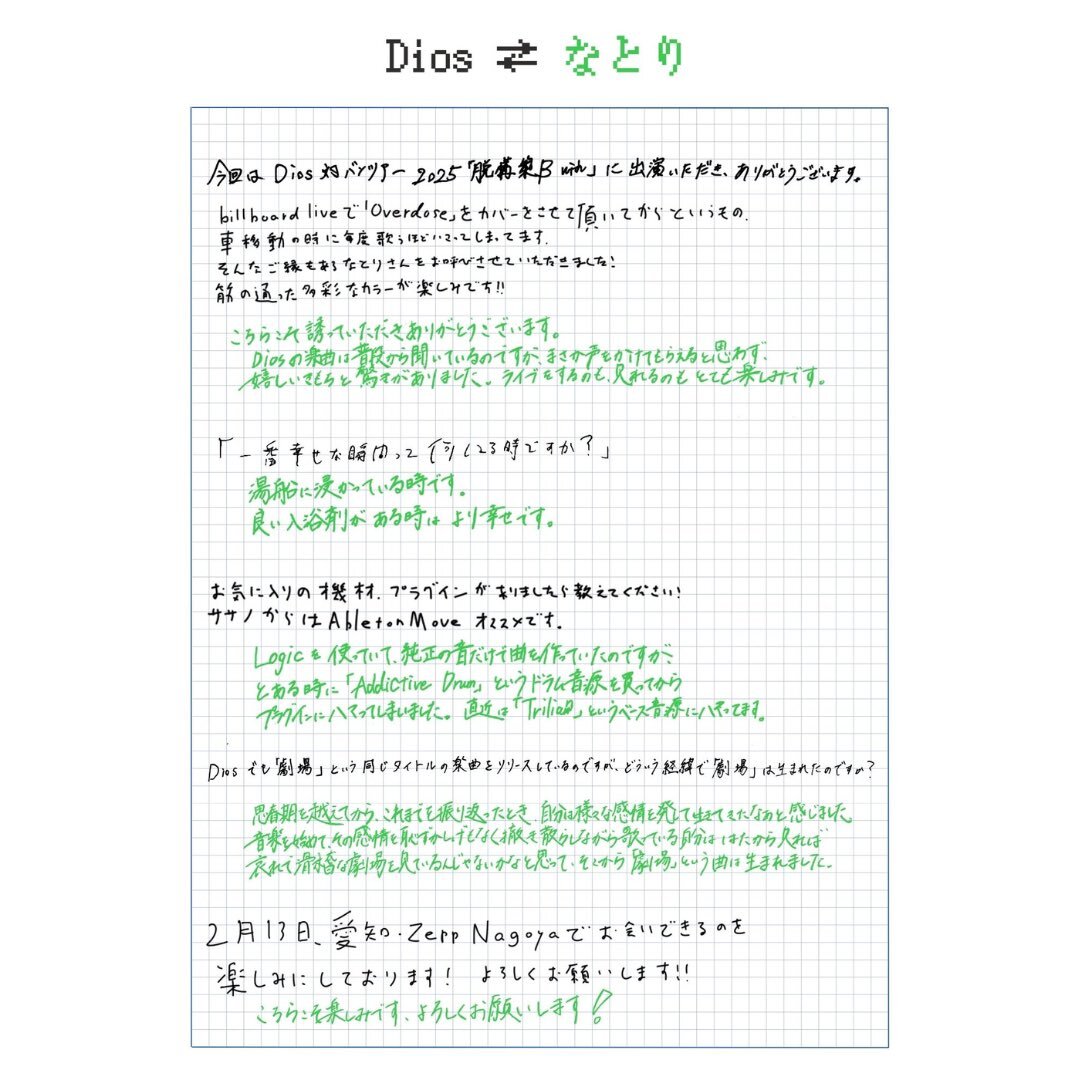 Dios ⇄ なとり
今回は Dios 対バンツアー 2025「脱構築β with」に出演いただき、ありがとうございます。
billboard liveで「Overdose」をカバーをさせて頂いてからというもの、
車移動の時に毎度歌うほどハマってしまってます。
そんなご縁もあるなとりさんをお呼びさせていただきました!
筋の通った多彩なカラーが楽しみです!!
こちらこそ誘っていただきありがとうございます。
Diosの楽曲は普段から聞いているのですが、まさか声をかけてもらえると思わず、
嬉しいきもちと驚きがありました。ライブをするのも、見れるのもとても楽しみです。
「一番幸せな瞬間って何してる時ですか?」
湯船に浸かっている時です。
良い入浴剤がある時はより幸せです。
お気に入りの機材、プラグインがありましたら教えてください!
ササノからはAbleton Move オススメです。
Logicを使っていて、純正の音だけで曲を作っていたのですが、
とある時に「Addictive Drum」というドラム音源を買ってから
プラグインにハマってしまいました。直近は「Trilian」というベース音源にハマってます。
Diosでも「劇場」という同じタイトルの楽曲をリリースしているのですが、どういう経緯で「劇場」は生まれたのですか?
思春期を越えてから、これまでを振り返ったとき、自分は様々な感情を発して生きてきたなあと感じました。
音楽を始めて、その感情を恥ずかしげもなく撒き散らしながら歌っている自分ははたから見れば
哀れで滑稽な劇場を見ているんじゃないかなと思って、そこから「劇場」という曲は生まれました。
2月13日、愛知・Zepp Nagoyaでお会いできるのを
楽しみにしております! よろしくお願いします!!
こちらこそ楽しみです、よろしくお願いします!